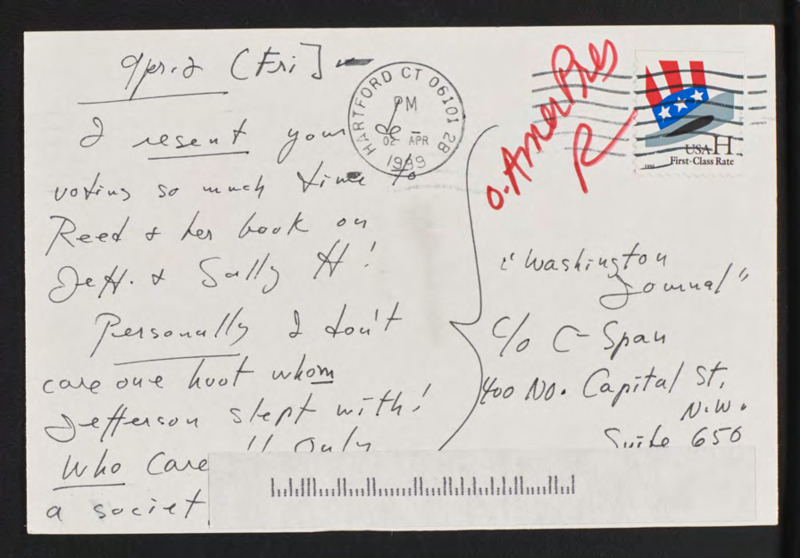 Apr. 2 (Fri]
I resent your de-
voting so much time to
Reed & her book on
Jeff. & Sally H!
Personally I don't
care one hoot whom
Jefferson slept with!
Who care !! Only
a societ
HARTFORD CT 06101 2B
PM
02 APR
1999
O. Amer Pres
R
USA H
First-Class Rate
"Washington
Journal"
c/o C-Span
400 No. Capital St.
N.W.
Suite 650